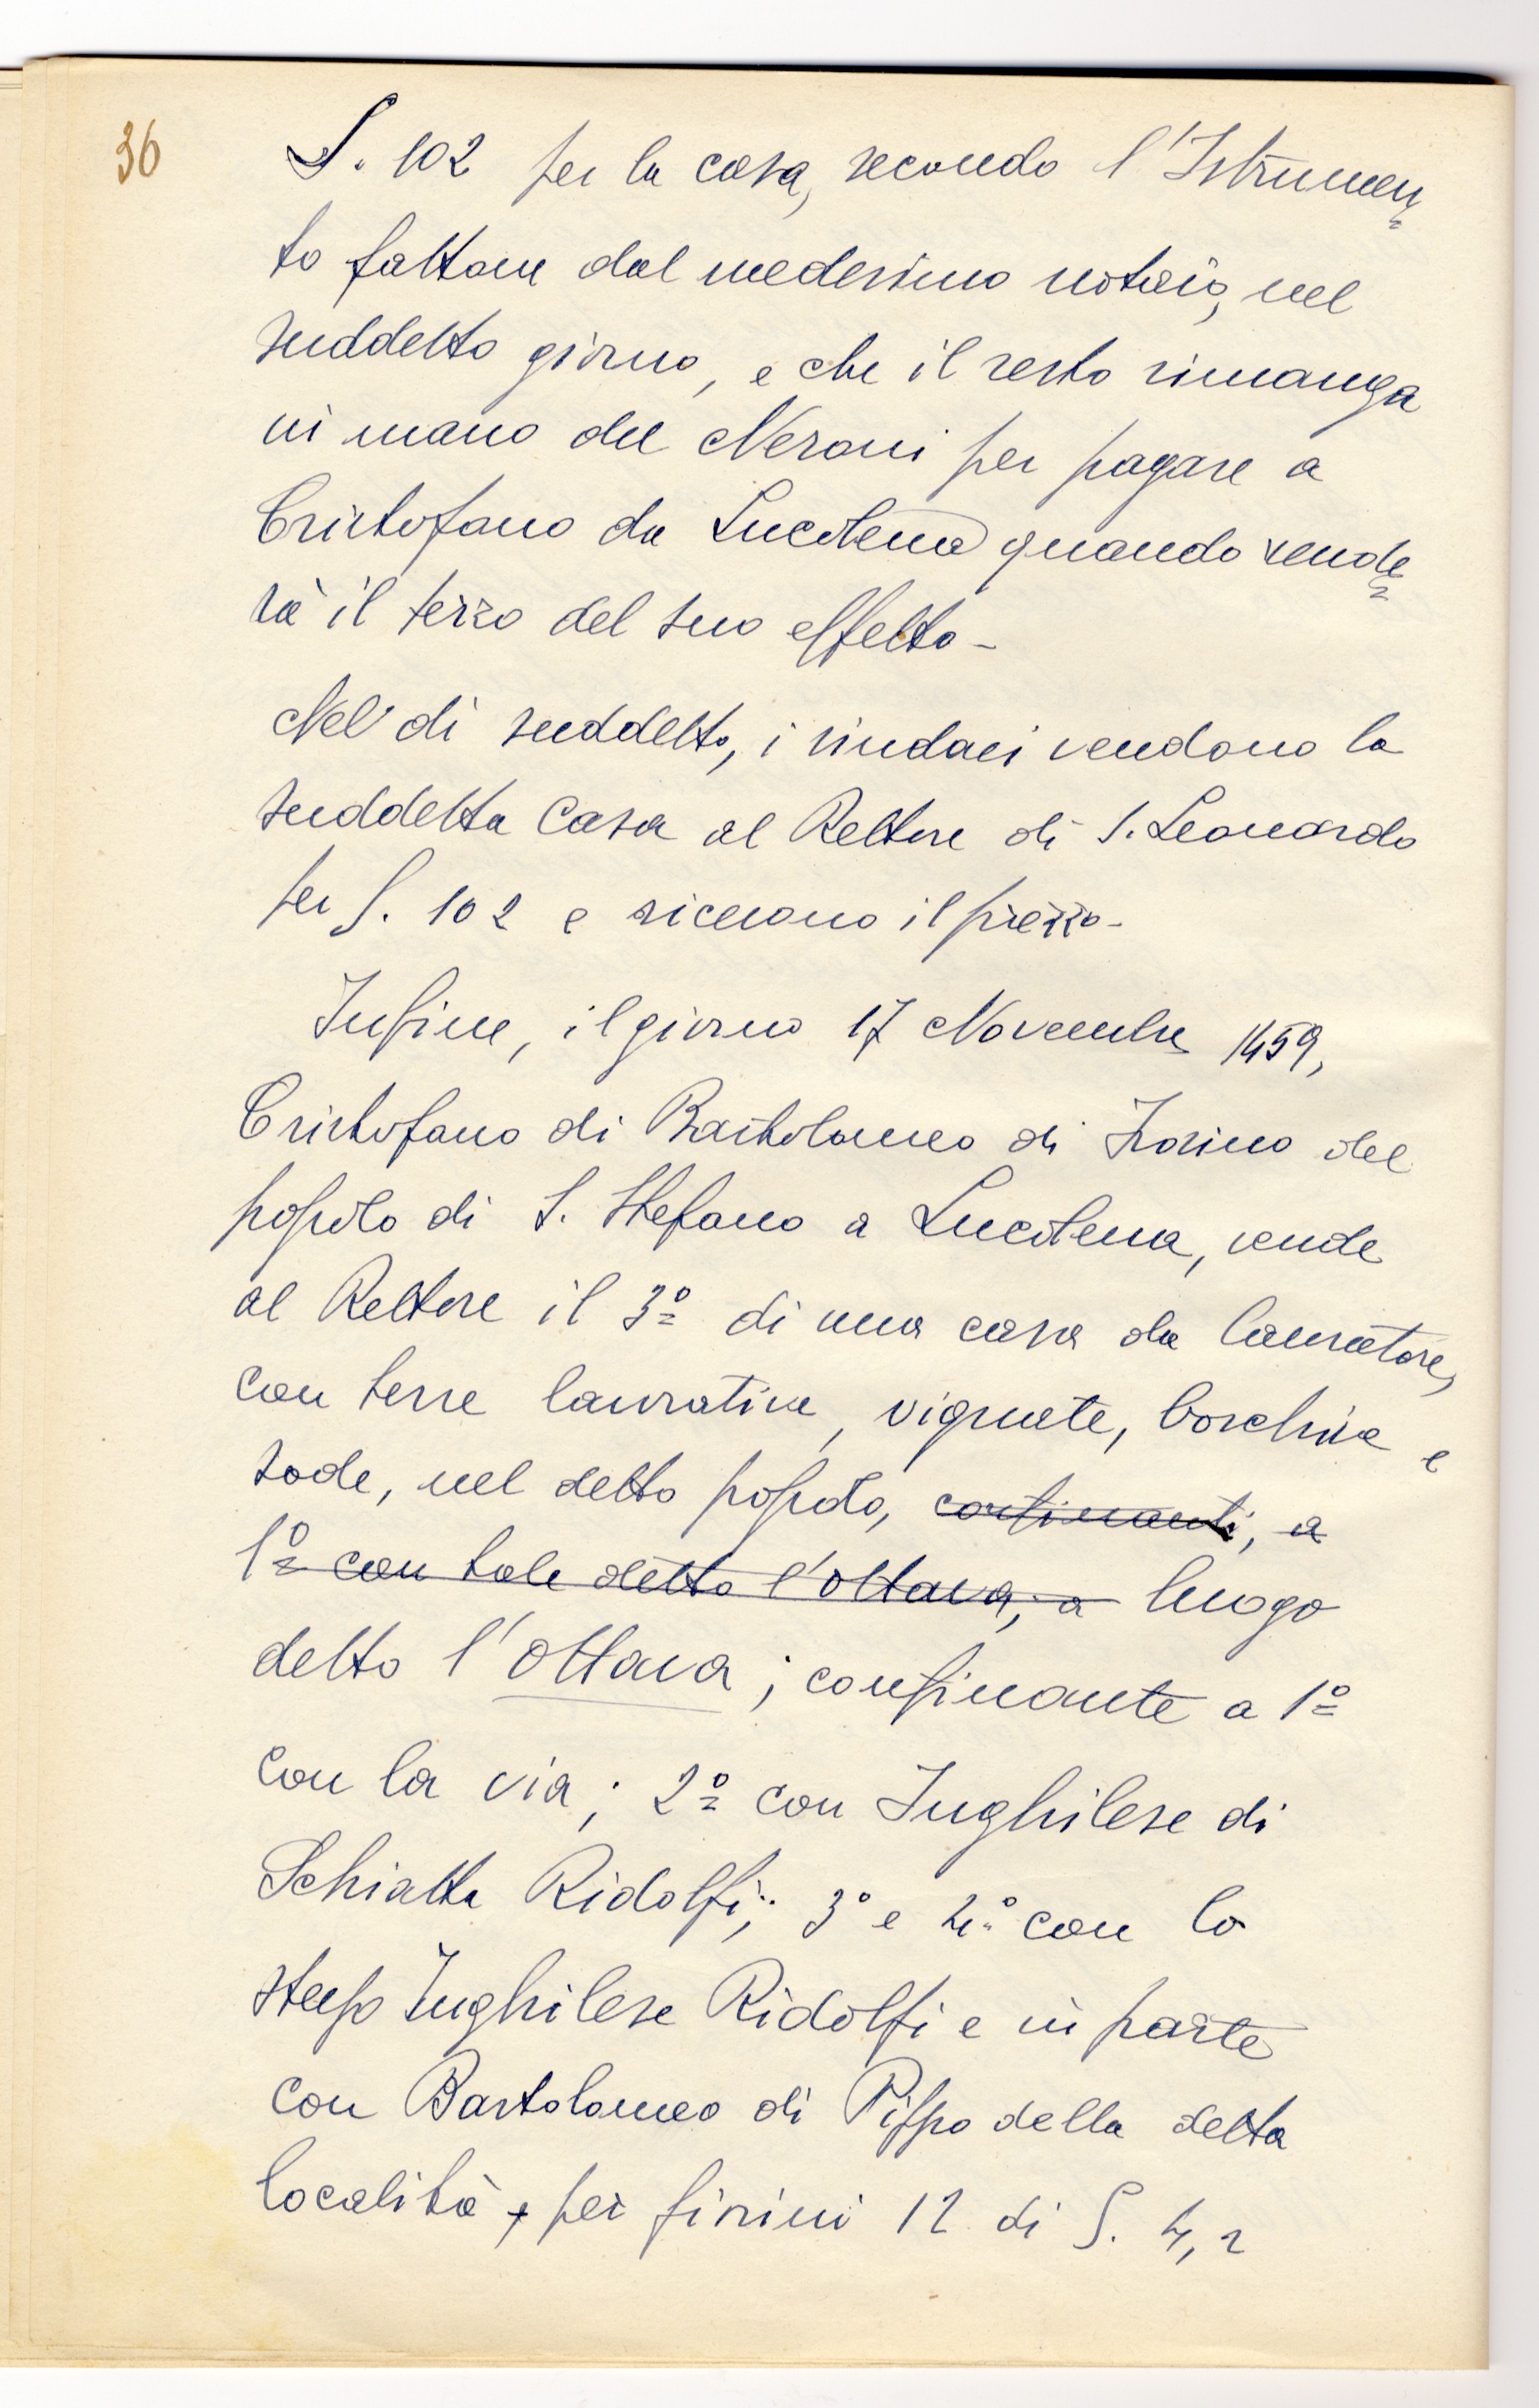 36
£. 102 per la casa, secondo l'Istrumen=
to fattone dal medesimo notaio, nel
suddetto giorno, e che il resto rimanga
in mano del Neroni per pagare a
Cristofano da Lucolena quando vende=
rà il terzo del suo effetto -
Nel dì suddetto, i sindaci vendono la
suddetta Casa al Rettore di S. Leonardo
per £. 102 e ricevono il prezzo -
Infine, il giorno 17 Novembre 1459,
Cristofano di Bartolomeo di Zorino del
popolo di S. Stefano a Lucolena, vende
al Rettore il 3º di una casa da lavoratore,
con terre lavorative, vignate, boschive e
sode, nel detto popolo, confinanti, a
1º con tale detto l'ottava, a luogo
detto l'ottava; confinante a 1º
con la via; 2º con Inghilese di
Schiatta Ridolfi; 3º e 4º con lo
stesso Inghilese Ridolfi e in parte
con Bartolomeo di Pippo della detta
località, per fiorini 12 di £. 4, 2